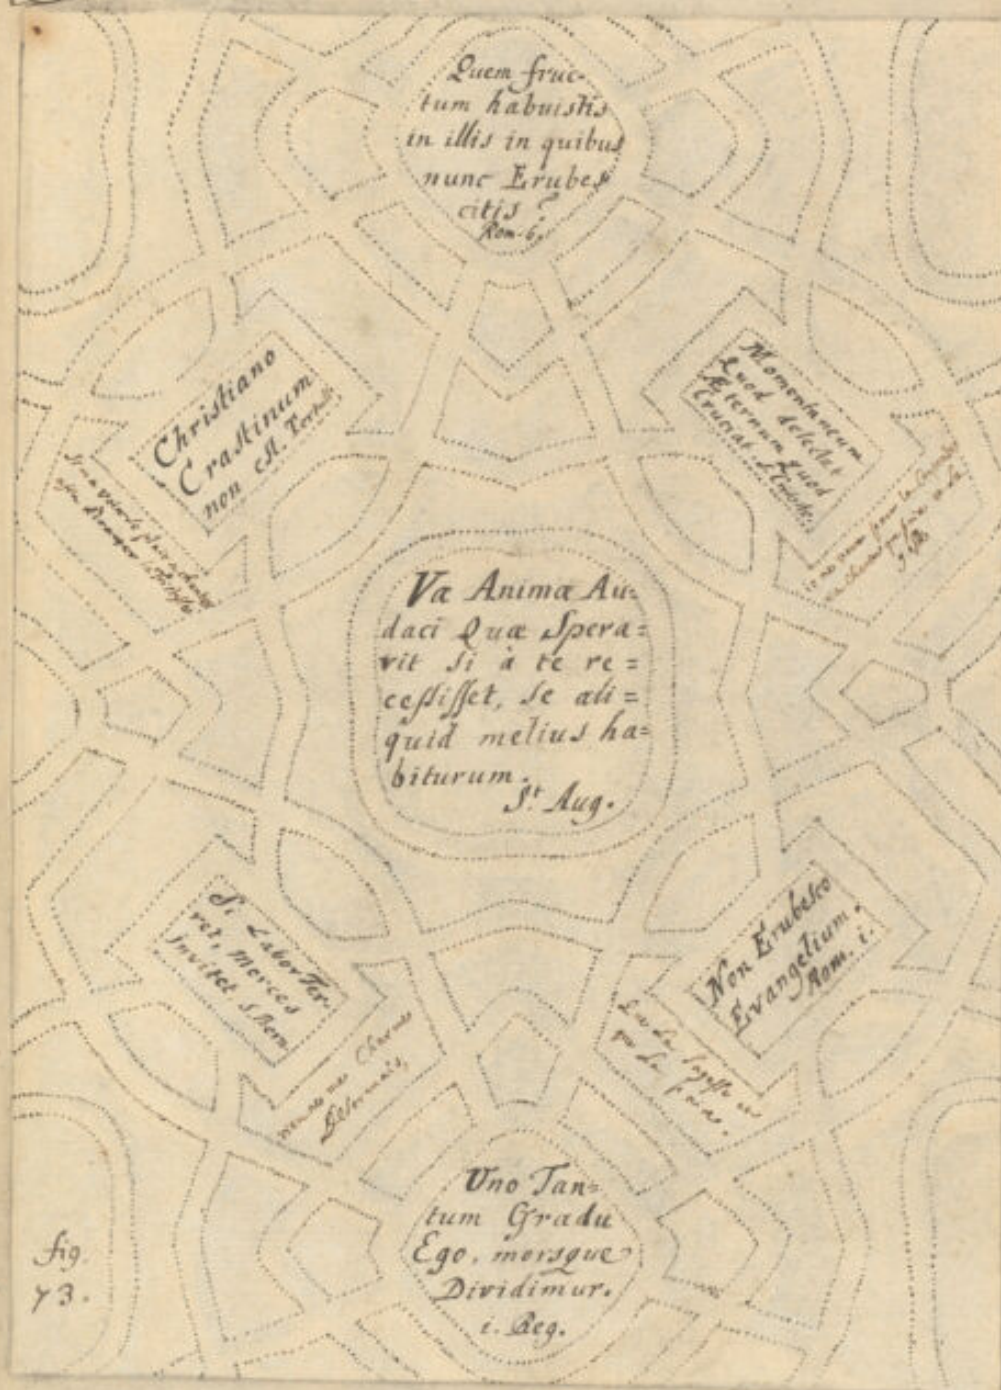 Quem fruc-
tum habuistis
in illis in quibus
nunc Erubes
citis ?
Rom. 6.
Christiano
Crastinum
non est. Tertull.
Momentaneum
Quod delectat
Æternum quod
Cruciat
Væ Animæ Au=
daci Quæ Spera=
vit Si à te re=
cessisset, Se ali=
quid melius ha=
biturum.
St. Aug.
Si Labor Ter-
ret, Merces
Invitet S. Bern.
Non Erubesco
Evangelium.
Rom. i.
Charmes
Desormais,
Vno Tan=
tum Gradu
Ego, morsque
Dividimur.
i. Reg.
fig.
73.